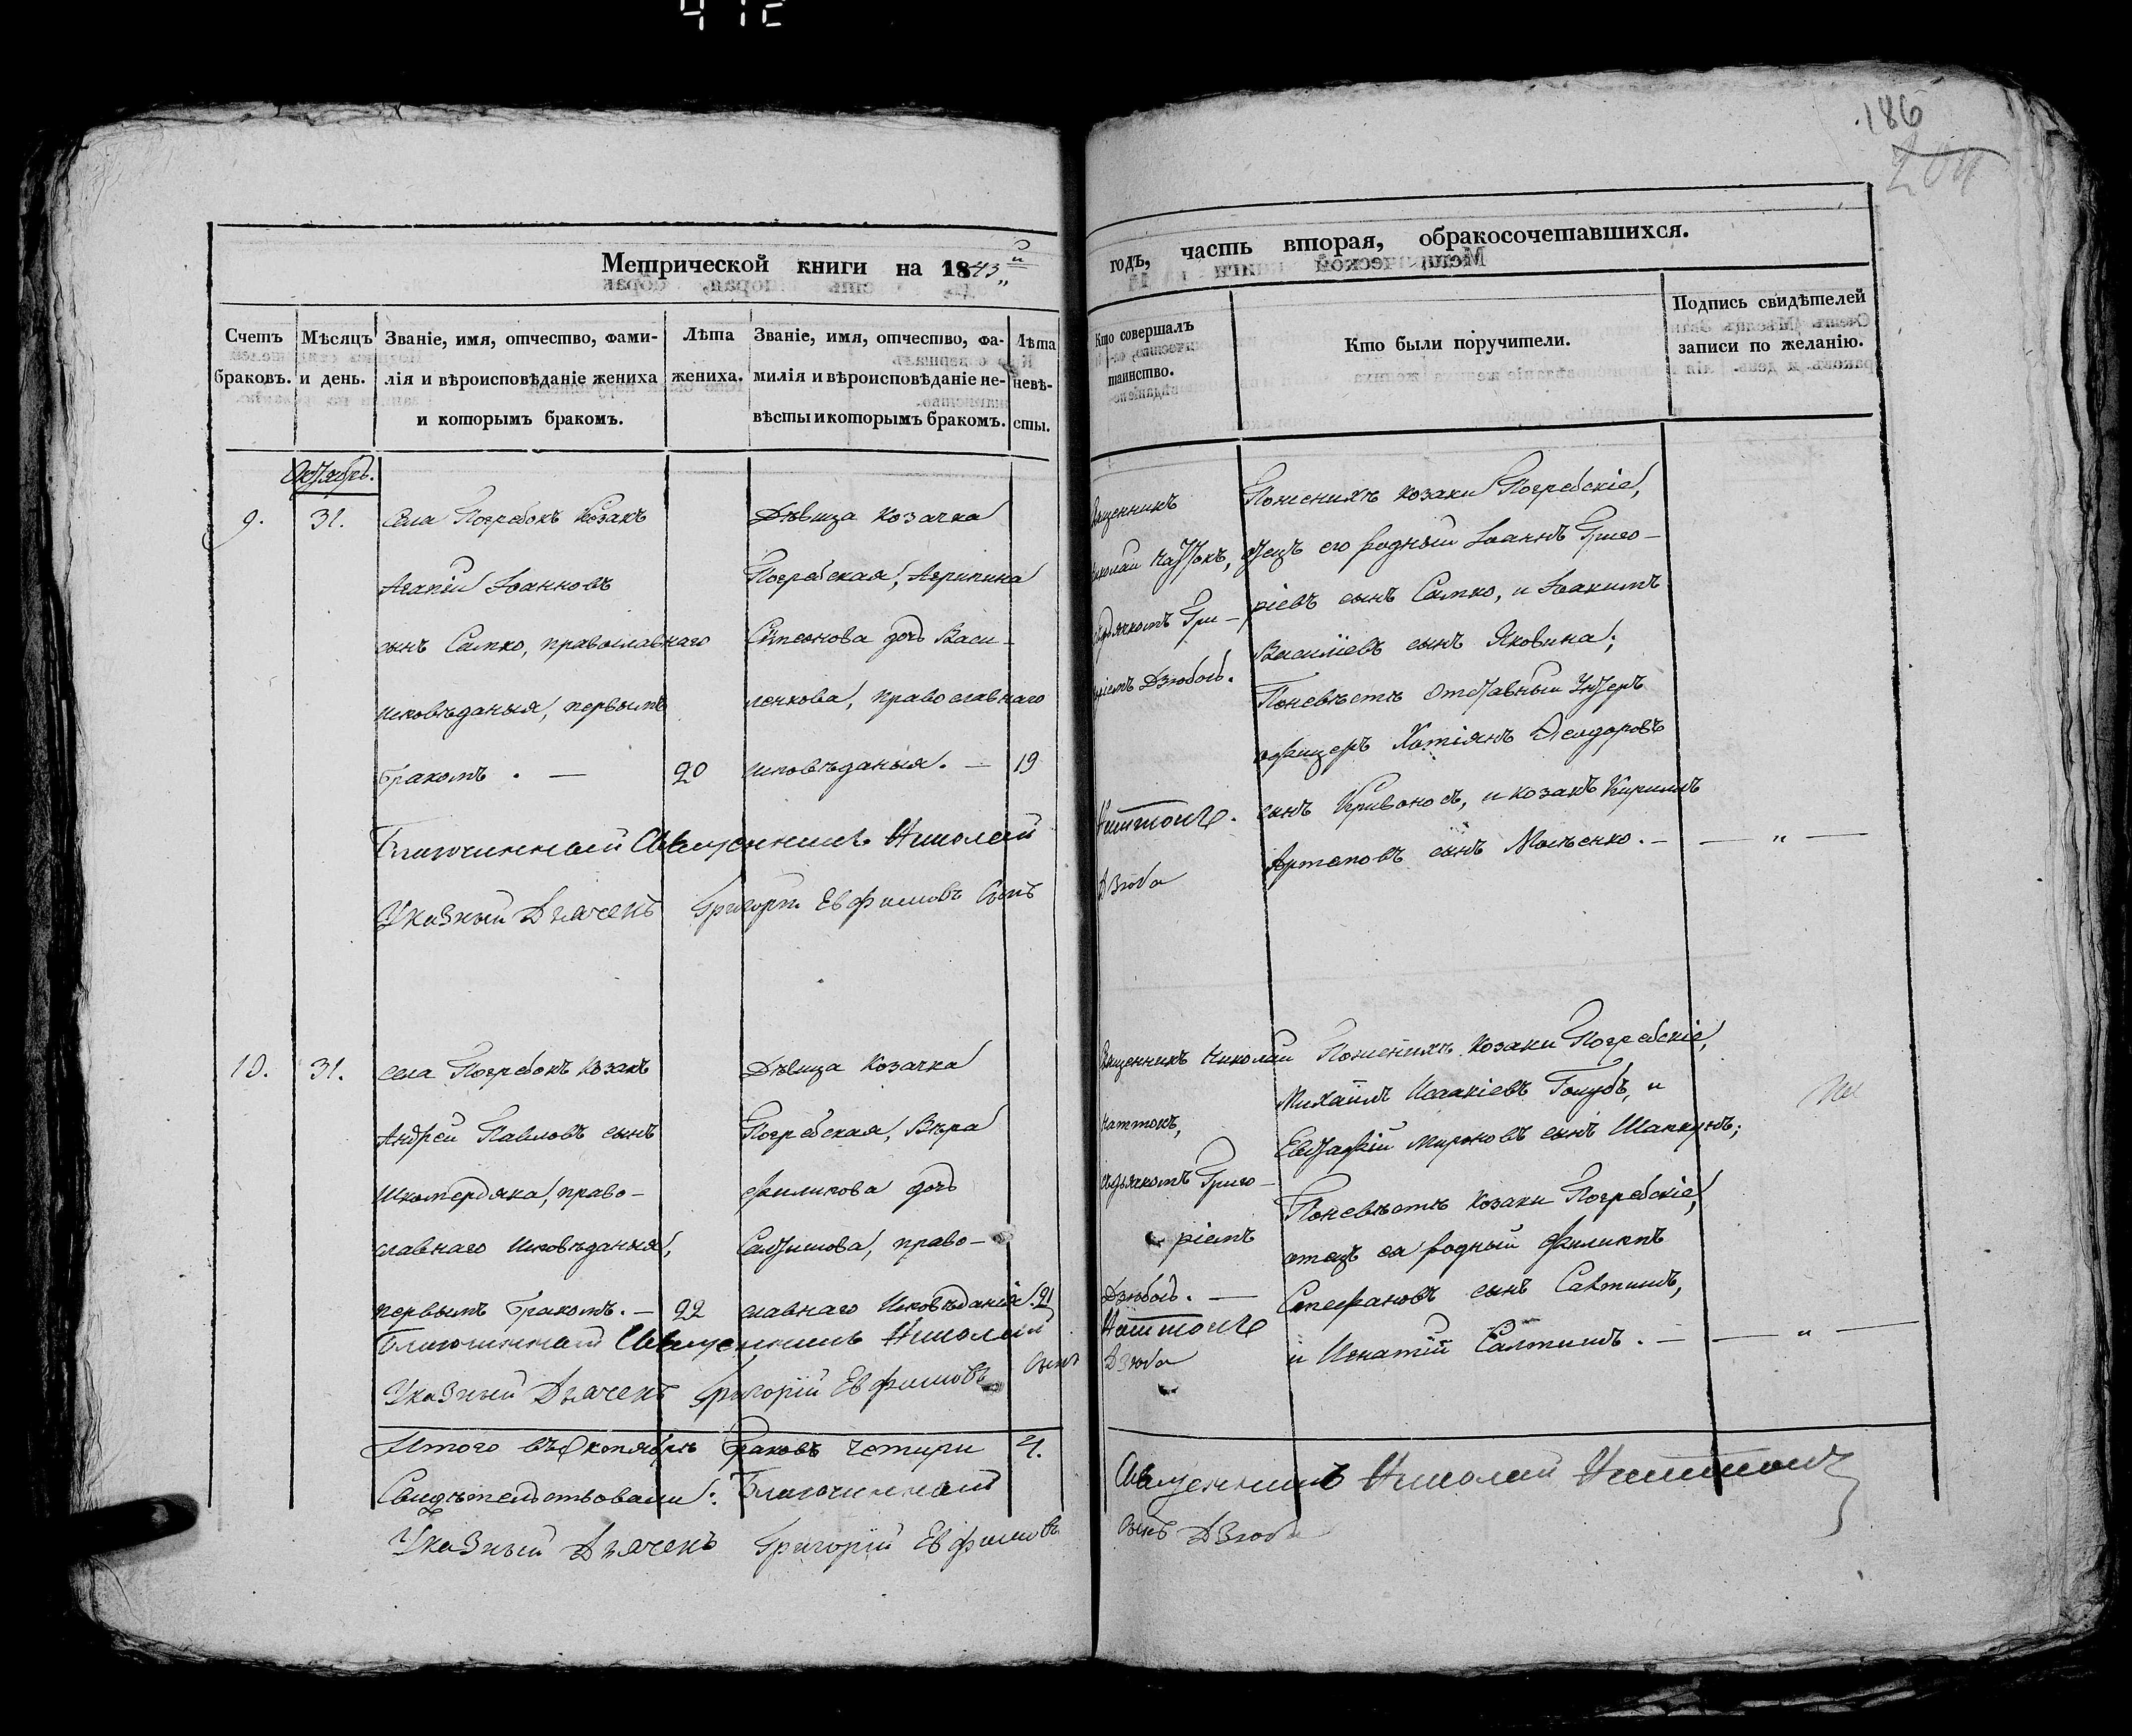 412
186
204
Метрической книги на 1843й
годъ, часть вторая, обракосочетавшихся.
Счетъ браковъ.
Мѣсяцъ и день.
Званіе, имя, отчество, фамилія и вѣроисповѣданіе жениха и которымъ бракомъ.
Лѣта жениха.
Званіе, имя, отчество, фамилія и вѣроисповѣданіе невѣсты и которымъ бракомъ.
Лѣта невѣсты.
Кто совершалъ таинство.
Кто были поручители.
Подпись свидѣтелей записи по желанію.
Октябрь.
9.
31.
Села Погребокъ Козакъ
Агапій Іоанновъ
сынъ Сапко, православнаго
исповѣданыя, первымъ
бракомъ. —
20
Дѣвица Козачка
Погребская, Агрипина
Симеонова дочь Васи-
ленкова, православнаго
исповѣданыя. —
19
Священникъ
Николай
дьячкомъ Гри-
горіемъ Дзюбою.
Пожениxѣ козаки Погребскіе,
отецъ его родный Іоаннъ Григо-
ріевъ сынъ Сапко, и Іоакимъ
Василіевъ сынъ Яковина;
Поневѣстѣ Отставный Унтеръ
офицеръ Ѳеодоровъ
сынъ Кривоносъ, и козакъ Кирилъ
сынъ
Благочинный Священникъ Николай
Указный Дьячекъ Григорій Евфимовъ Сынъ
Дзюба
10.
31.
села Погребокъ Козакъ
Андрей Павловъ сынъ
Шкомердяка, право-
славнаго исповѣданыя,
первымъ бракомъ. —
22
Дѣвица Козачка
Погребская, Вѣра
Филипова дочь
право-
славнаго Исповѣданія.
21
Священникъ Николай
съдьячкомъ Григо-
ріемъ
Дзюбою. —
Пожениxѣ козаки Погребскіе,
Михаилъ Исаакіевъ Голубъ, и
Евстафій Мироновъ сынъ
Поневѣстѣ Козаки Погребскіе,
отецъ ея родный Филиппъ
Стефановъ сынъ
и Игнатій —
Благочинный Священникъ Николай
Указный Дьячекъ Григорій Евфимовъ Сынъ
Дзюба
Итого въ Октябрѣ браковъ четыри
4.
Свидѣтельствовали: Благочинный
Священникъ Николай
Указный Дьячекъ Григорій Евфимовъ
сынъ Дзюба